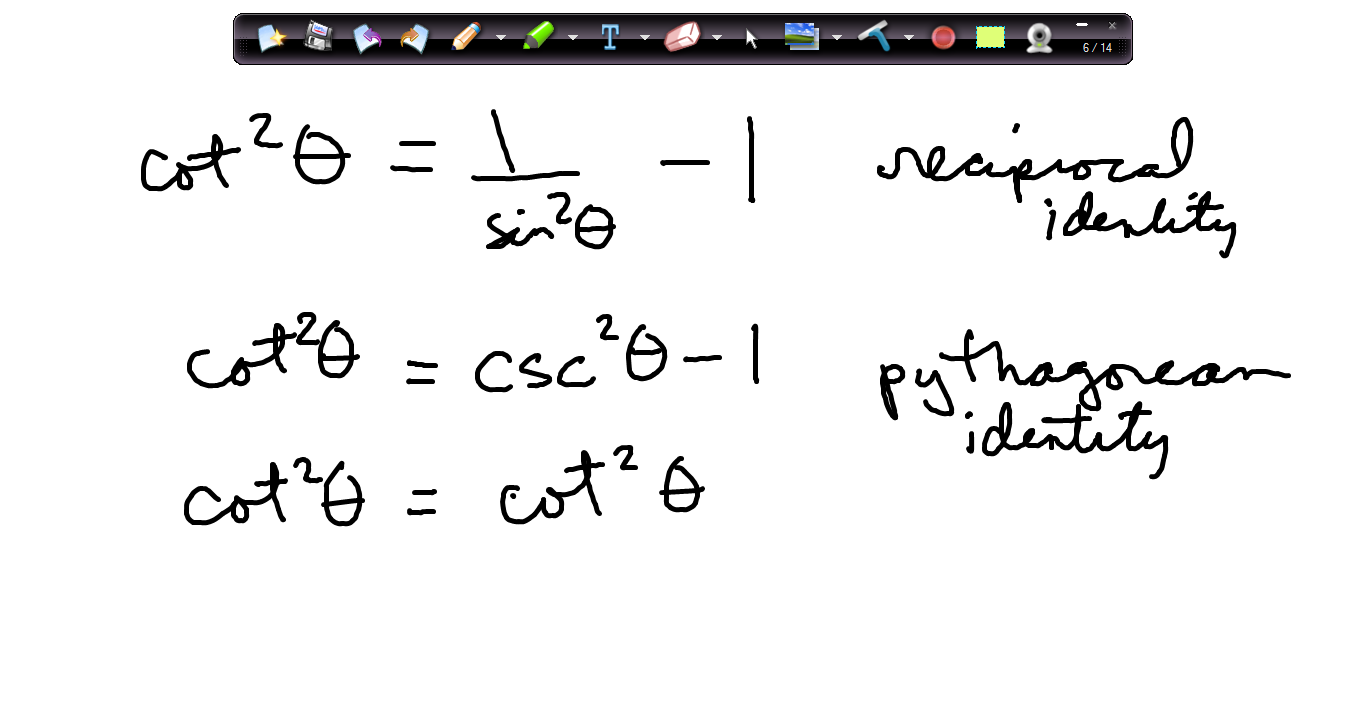 T
6 / 14
cot²θ = 1/sin²θ − 1 reciprocal
identity
cot²θ = csc²θ − 1 pythagorean
identity
cot²θ = cot²θ